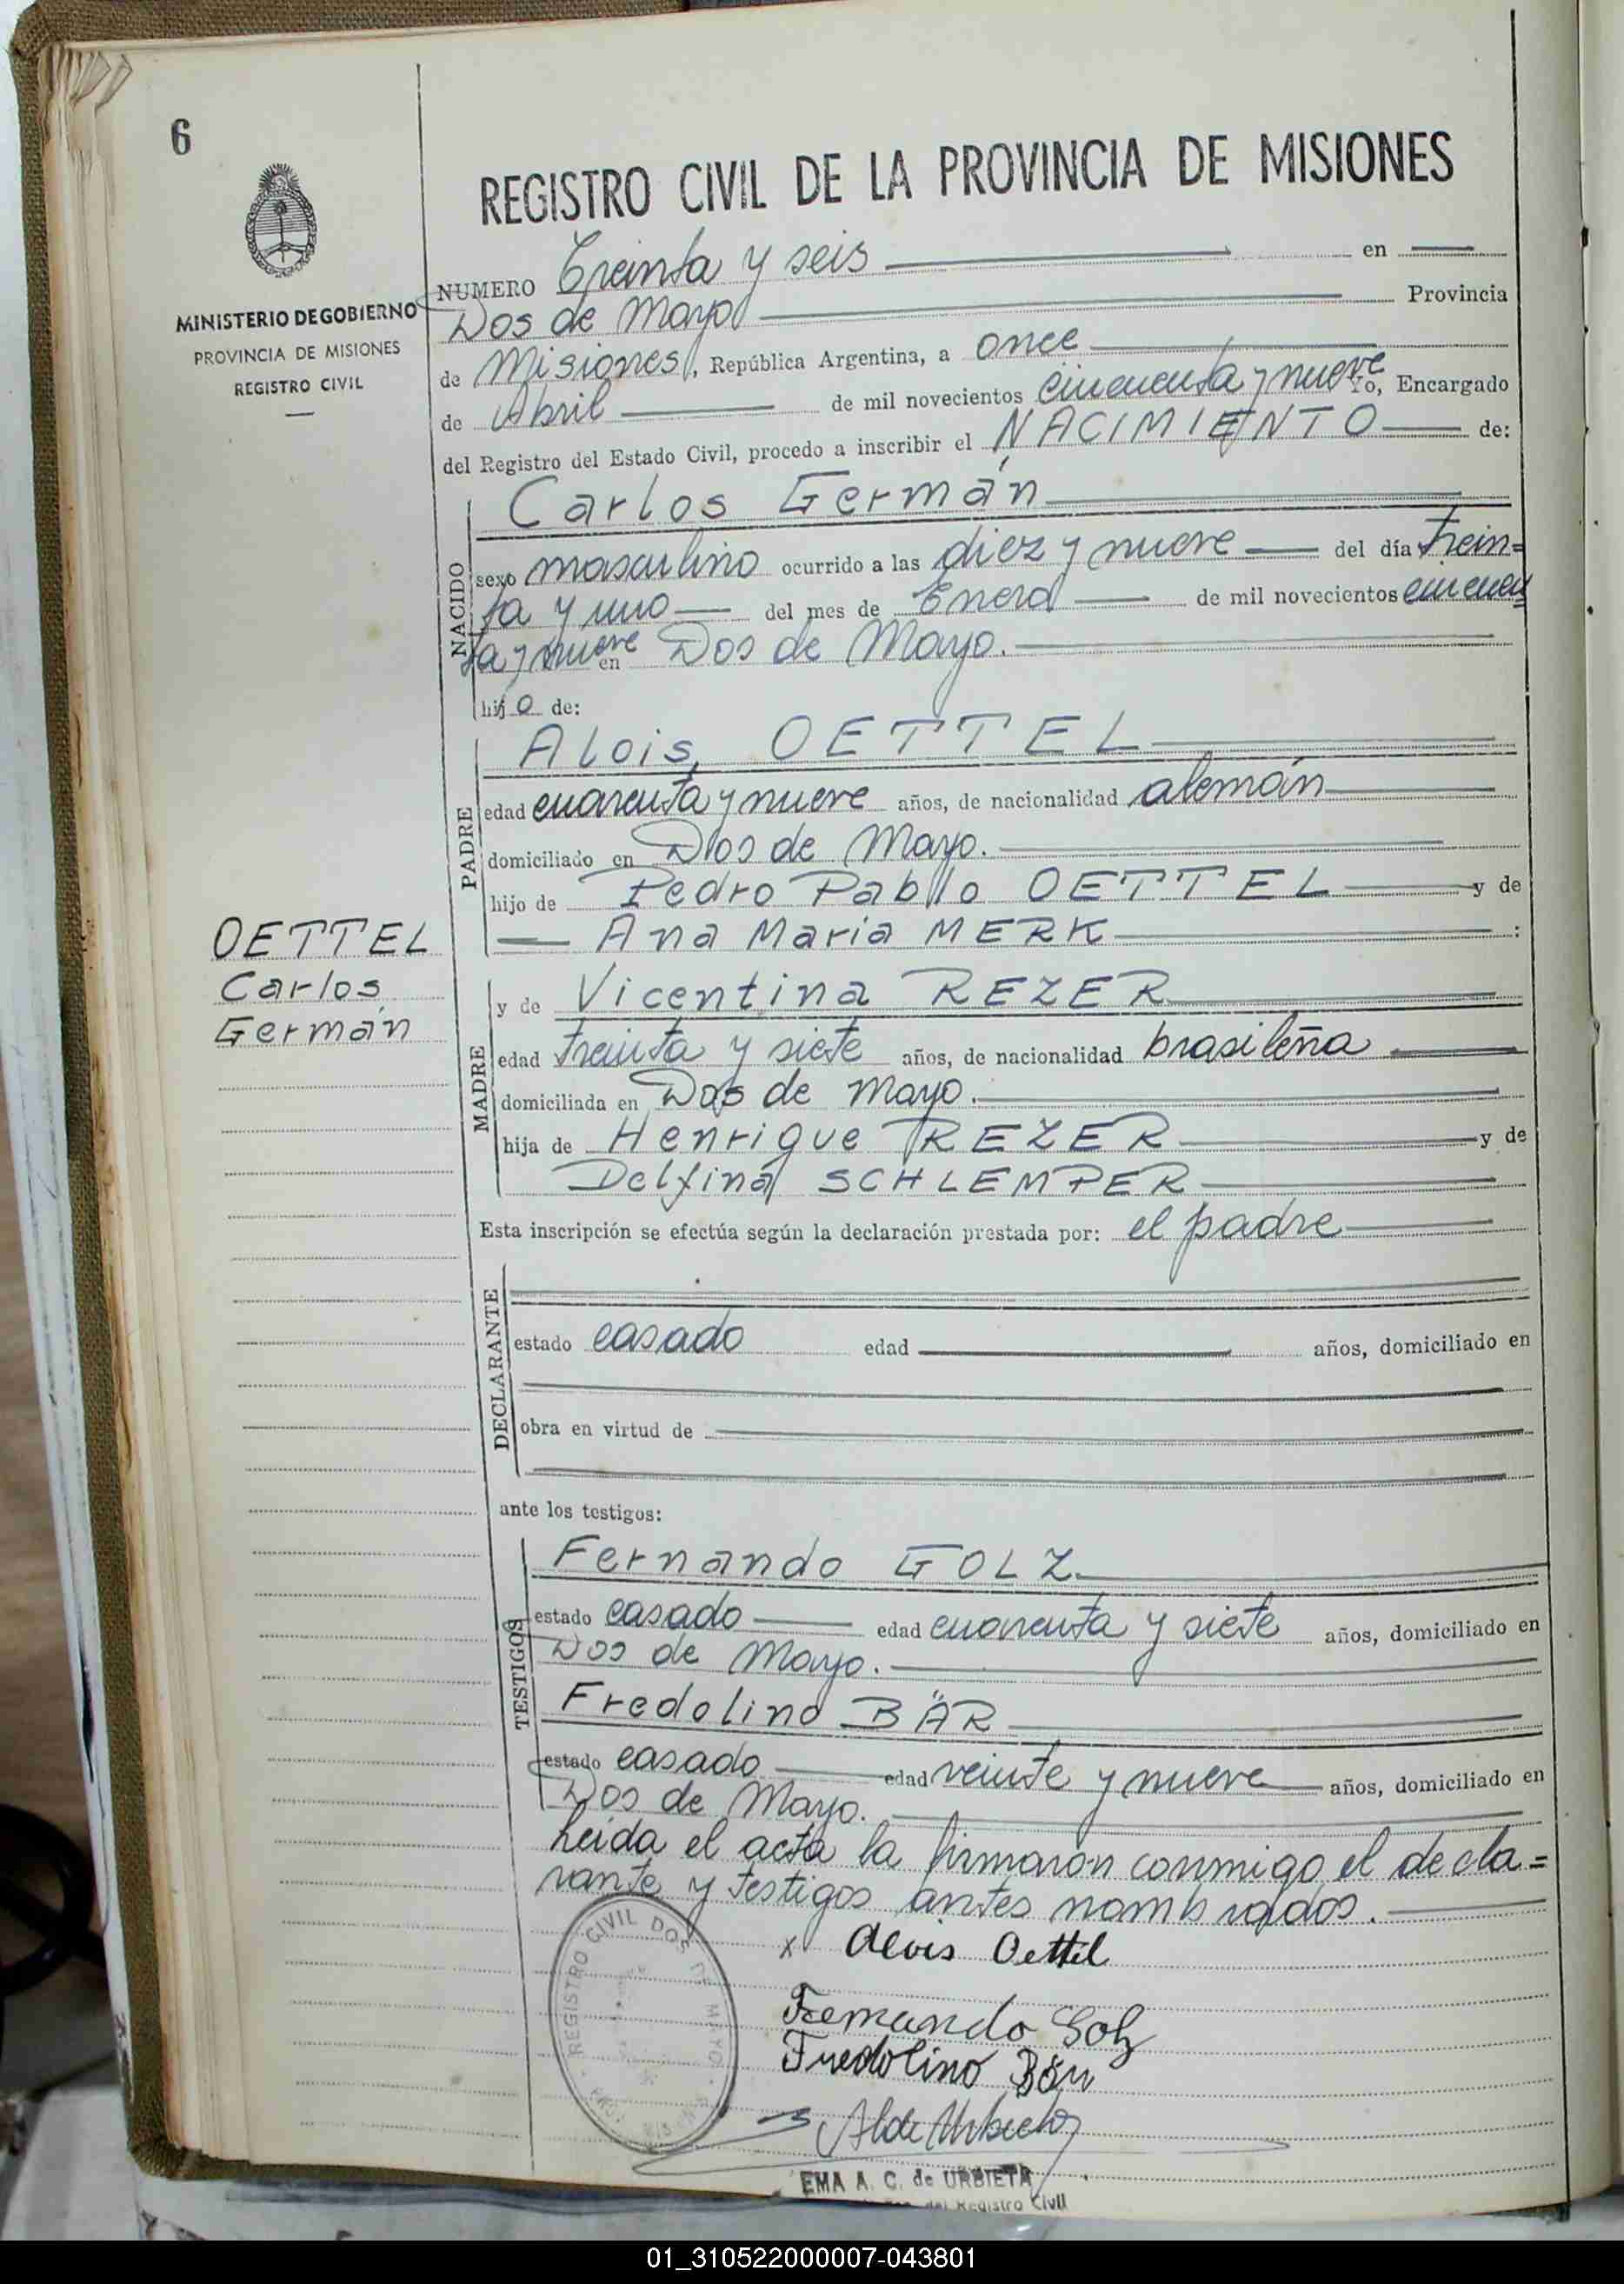 6
MINISTERIO DE GOBIERNO
PROVINCIA DE MISIONES
REGISTRO CIVIL
REGISTRO CIVIL DE LA PROVINCIA DE MISIONES
NUMERO Treinta y seis en
Dos de Mayo Provincia
de Misiones, República Argentina, a once
de Abril de mil novecientos cincuenta y nueve Yo, Encargado
del Registro del Estado Civil, procedo a inscribir el NACIMIENTO de:
NACIDO
Carlos Germán
sexo masculino ocurrido a las diez y nueve del día trein=
ta y uno del mes de Enero de mil novecientos cincuen
ta y nueve en Dos de Mayo.
hijo de:
PADRE
Alois, OETTEL
edad cuarenta y nueve años, de nacionalidad alemán
domiciliado en Dos de Mayo.
hijo de Pedro Pablo OETTEL y de
Ana Maria MERK :
OETTEL
Carlos
Germán
MADRE
y de Vicentina REZER
edad treinta y siete años, de nacionalidad brasileña
domiciliada en Dos de Mayo.
hija de Henrique REZER y de
Delfina SCHLEMPER
Esta inscripción se efectúa según la declaración prestada por: el padre
DECLARANTE
estado casado edad años, domiciliado en
obra en virtud de
ante los testigos:
TESTIGOS
Fernando GOLZ
estado casado edad cuarenta y siete años, domiciliado en
Dos de Mayo.
Fredolino BÄR
estado casado edad veinte y nueve años, domiciliado en
Dos de Mayo.
Leida el acta la firmaron conmigo el decla=
rante y testigos antes nombrados.
REGISTRO CIVIL DOS DE MAYO
x Alois Oettel
Fernando Golz
Fredolino Bär
EMA A. C. de URBIETA
del Registro Civil
01_310522000007-043801